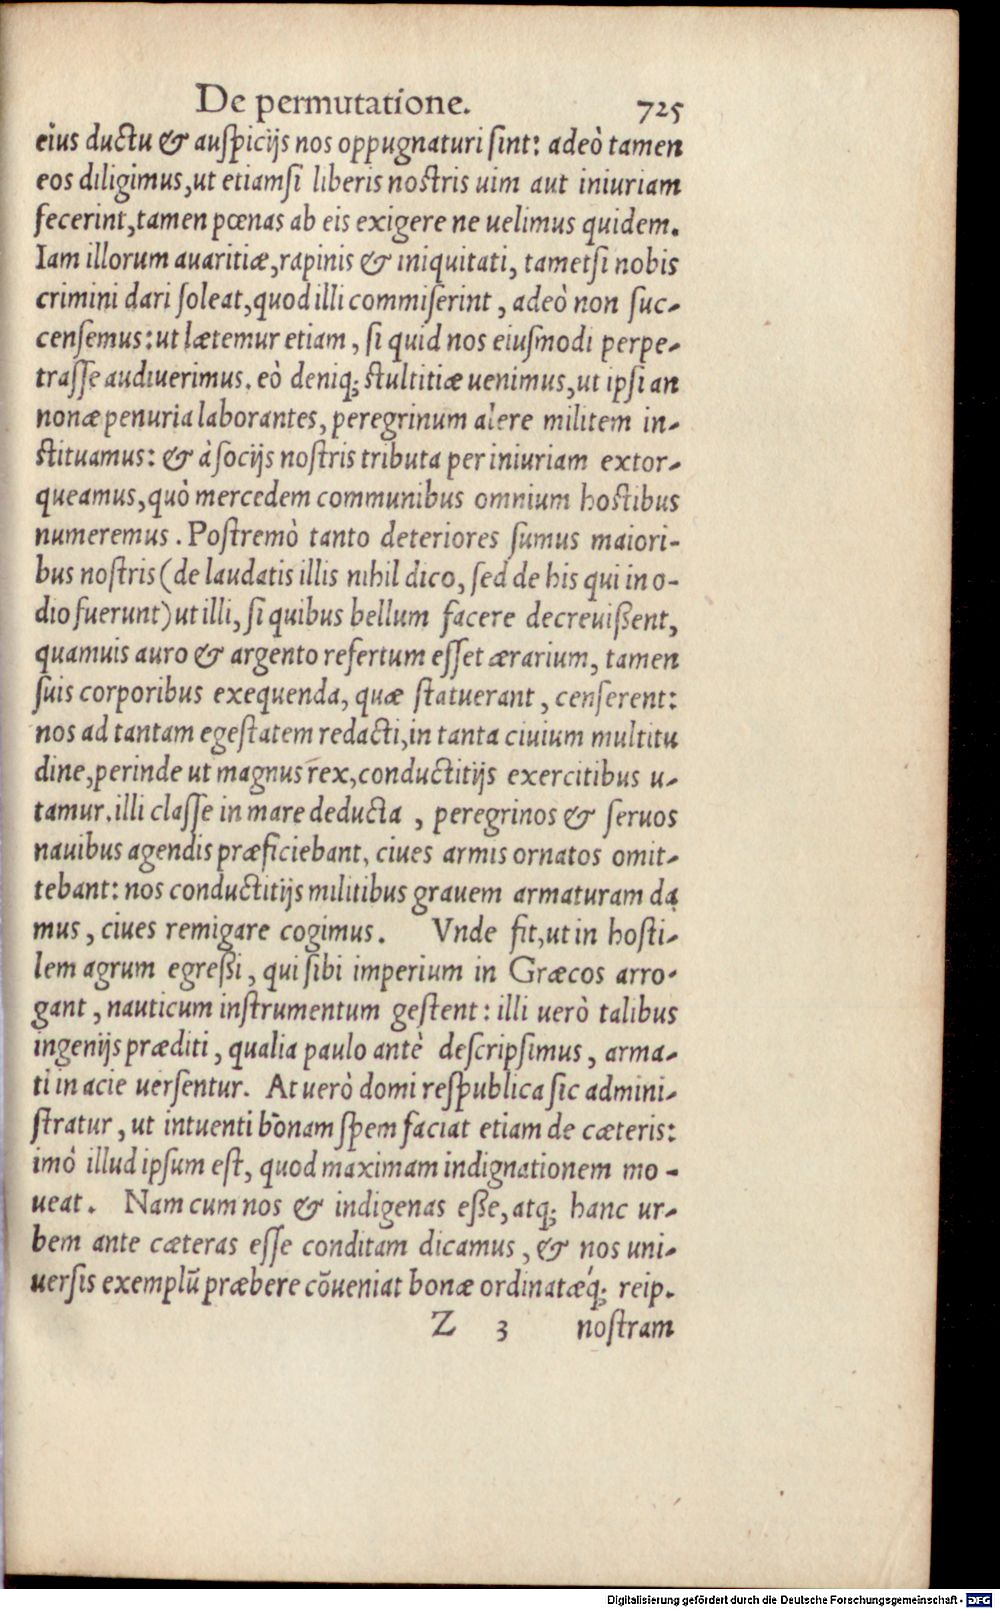 De permutatione. 725
eius ductu & auspicijs nos oppugnaturi sint: adeò tamen
eos diligimus, ut etiamsi liberis nostris uim aut iniuriam
fecerint, tamen pœnas ab eis exigere ne uelimus quidem.
Iam illorum auaritiæ, rapinis & iniquitati, tametsi nobis
crimini dari soleat, quod illi commiserint, adeò non suc-
censemus: ut lætemur etiam, si quid nos eiusmodi perpe-
trasse audiuerimus. eò deniq; stultitiæ uenimus, ut ipsi an
nonæ penuria laborantes, peregrinum alere militem in-
stituamus: & à socijs nostris tributa per iniuriam extor-
queamus, quò mercedem communibus omnium hostibus
numeremus. Postremò tanto deteriores sumus maiori-
bus nostris (de laudatis illis nihil dico, sed de his qui in o-
dio fuerunt) ut illi, si quibus bellum facere decreuißent,
quamuis auro & argento refertum esset ærarium, tamen
suis corporibus exequenda, quæ statuerant, censerent:
nos ad tantam egestatem redacti, in tanta ciuium multitu
dine, perinde ut magnus rex, conductitijs exercitibus u-
tamur. illi classe in mare deducta, peregrinos & seruos
nauibus agendis præficiebant, ciues armis ornatos omit-
tebant: nos conductitijs militibus grauem armaturam da
mus, ciues remigare cogimus. Vnde fit, ut in hosti-
lem agrum egreßi, qui sibi imperium in Græcos arro-
gant, nauticum instrumentum gestent: illi uerò talibus
ingenijs præditi, qualia paulo antè descripsimus, arma-
ti in acie uersentur. At uerò domi respublica sic admini-
stratur, ut intuenti bonam spem faciat etiam de cæteris:
imò illud ipsum est, quod maximam indignationem mo-
ueat. Nam cum nos & indigenas eße, atq; hanc ur-
bem ante cæteras esse conditam dicamus, & nos uni-
uersis exemplū præbere cōueniat bonæ ordinatæq́; reip.
Z 3 nostram
Digitalisierung gefördert durch die Deutsche Forschungsgemeinschaft - DFG